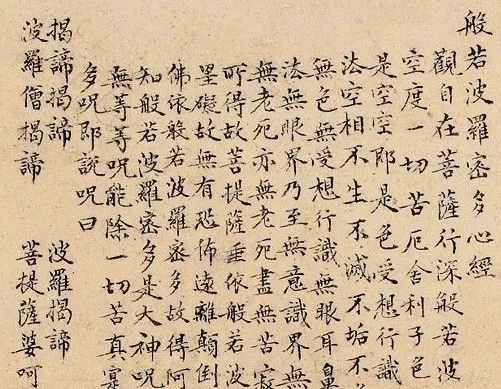 般若波羅密多心經
觀自在菩薩行深般若波
空度一切苦厄舍利子色
是空空即是色受想行識
法空相不生不滅不垢不
無色無受想行識無眼耳鼻
法無眼界乃至無意識界無
無老死亦無老死盡無苦寂
所得故菩提薩垂依般若波
罣礙故無有恐怖遠離顛倒
佛依般若波羅密多故得阿
知般若波羅密多是大神呪
無等等呪能除一切苦真寔
多呪即說呪曰
揭諦揭諦 波羅揭諦
波羅僧揭諦 菩提薩婆呵